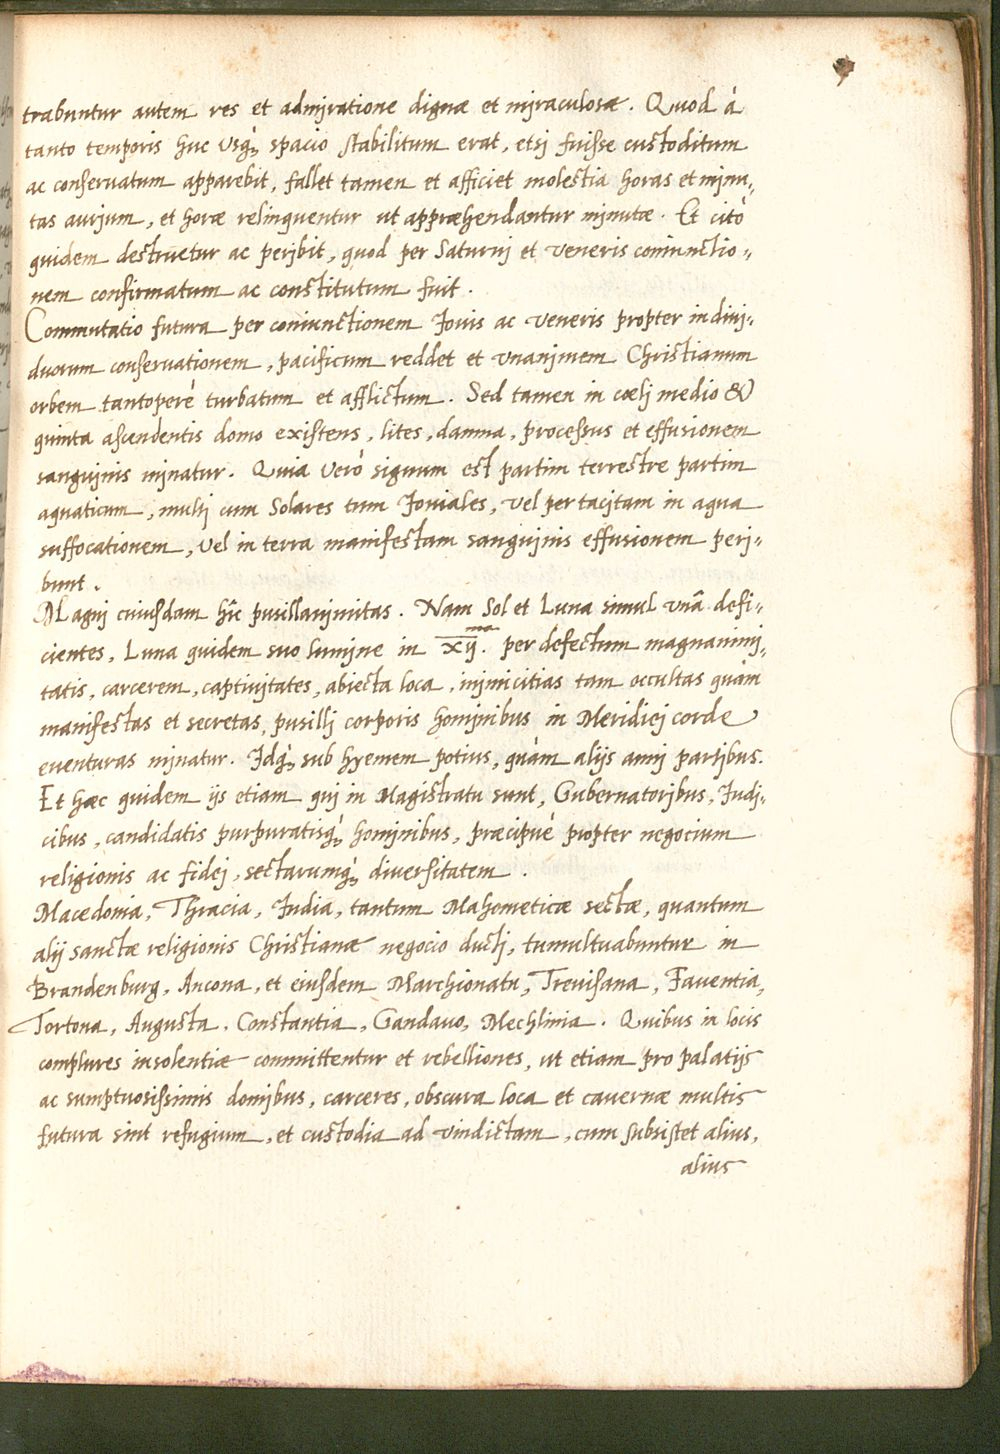 trabuntur autem res et admiratione dignæ et miraculosæ. Quod à
tanto temporis huc usq́ꝫ spacio stabilitum erat, etsi fuisse custoditum
ac conseruatum apparebit, fallet tamen et afficiet molestia horas et minu„
tas aurium, et horæ relinquentur ut appræhendantur minutæ. Et citò
quidem destruetur ac peribit, quod per Saturni et Veneris coniunctio„
nem confirmatum ac constitutum fuit.
Commutatio futura per coniunctionem Iouis ac Veneris propter indiui„
duorum conseruationem, pacificum reddet et vnanimem Christianum
orbem tantoperè turbatum et afflictum. Sed tamen in cœli medio &
quinta ascendentis domo existens, lites, damna, processus et effusionem
sanguinis minatur. Quia verò signum est partim terrestre partim
aquaticum, multi cum Solares tum Iouiales, vel per tacitam in aqua
suffocationem, vel in terra manifestam sanguinis effusionem peri„
bunt.
Magni cuiusdam hic pusillanimitas. Nam Sol et Luna simul vnà defi„
cientes, Luna quidem suo lumine in xij.ma per defectum magnanimi„
tatis, carcerem, captiuitates, abiecta loca, inimicitias tam occultas quàm
manifestas et secretas, pusilli corporis hominibus in Meridiei corde
euenturas minatur. Idq́ꝫ sub hyemem potius, quàm alijs anni partibus.
Et hæc quidem ijs etiam qui in Magistratu sunt, Gubernatoribus, Iudi„
cibus, candidatis purpuratisq́ꝫ hominibus, præcipuè propter negocium
religionis ac fidei, sectarumq́ꝫ diuersitatem.
Macedonia, Thracia, India, tantum Mahometicæ sectæ, quantum
alij sanctæ religionis Christianæ negocio ducti, tumultuabuntur in
Brandenburg, Ancona, et eiusdem Marchionatu, Treuisana, Fauentia,
Tortona, Augusta, Constantia, Gandauo, Mechlinia. Quibus in locis
complures insolentiæ committentur et rebelliones, ut etiam pro palatijs
ac sumptuosissimis domibus, carceres, obscura loca et cauernæ multis
futura sint refugium, et custodia ad vindictam, cum subsistet alius,
alius